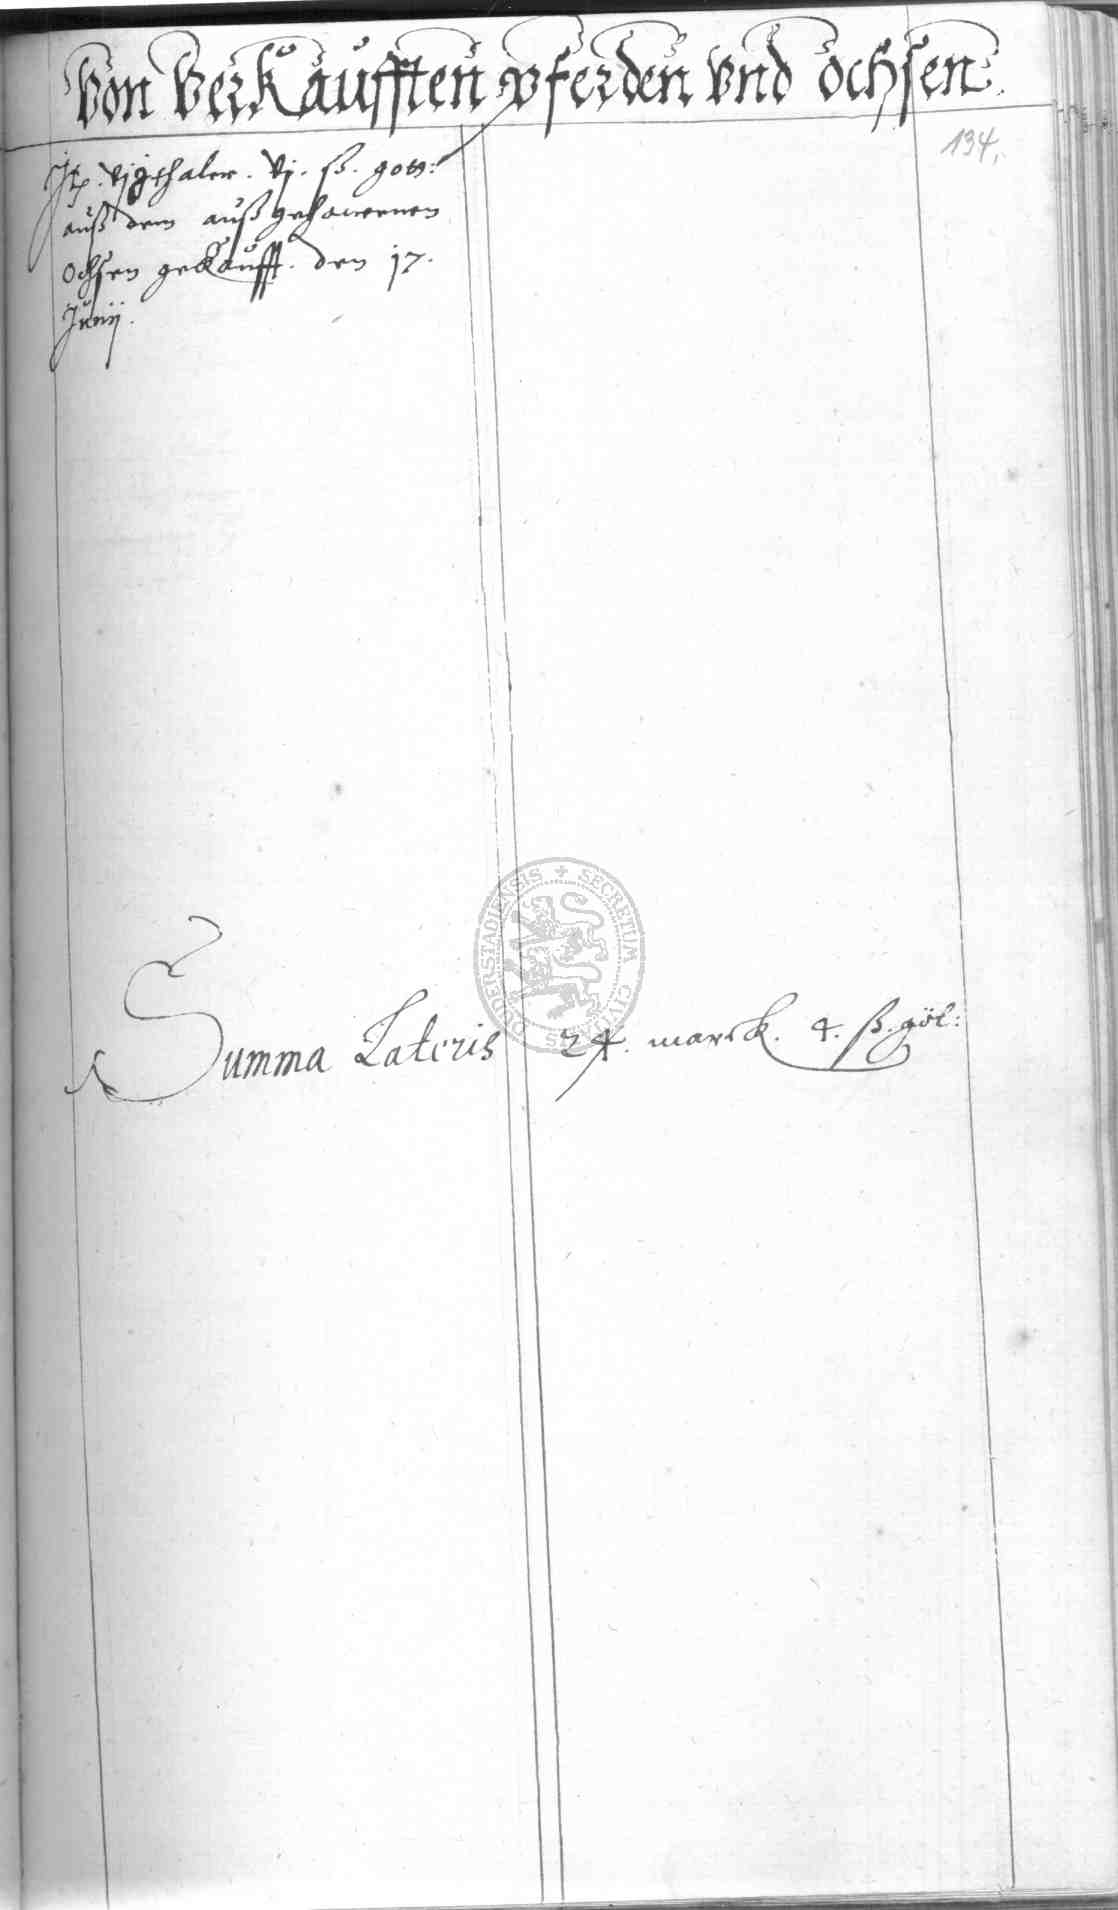 Von Verkaufften pferden Vnd ochsen.
134.
Jtp. Vijgthaler. Vj. ß. gott:
auß dem außgehawenen
Ochsen gekaufft. den 17.
Junij.
DUDERSTADIENSIS + SECRETUM CIVITATIS
Summa Lateris 24. marck. 4. ß. göt: